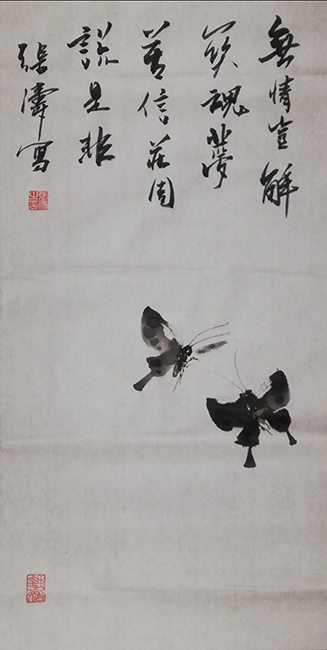 無情豈解
関魂夢
莫信莊周
說是非
張濤寫